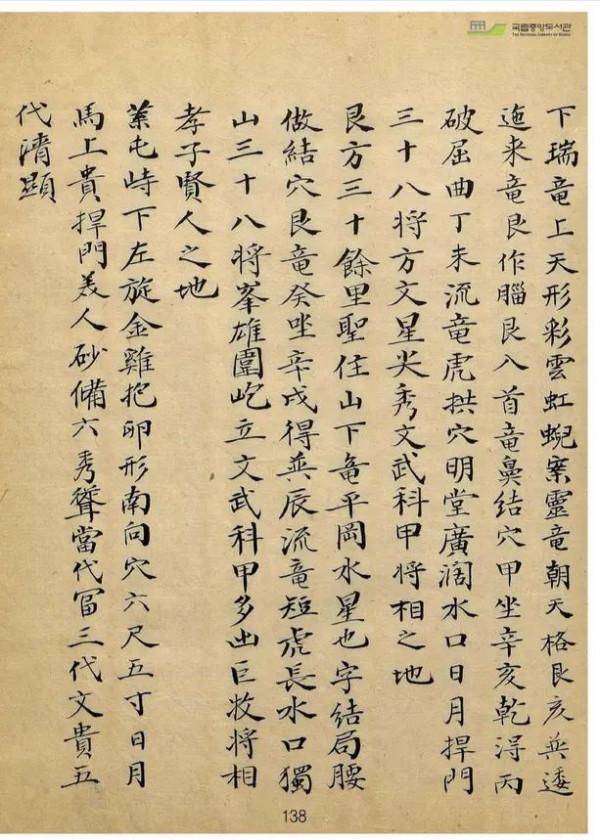 국립중앙도서관
THE NATIONAL LIBRARY OF KOREA
下瑞竜上天形彩雲虹蜺案靈竜朝天格艮亥兵逶
迤来竜艮作腦艮八首竜鼻結穴甲坐辛亥乾淂丙
破屈曲丁未流竜虎拱穴明堂廣濶水口日月捍門
三十八将方文星尖秀文武科甲将相之地
艮方三十餘里聖住山下竜平岡水星也字結局腰
做結穴艮竜癸坐辛戌得兵辰流竜短虎長水口獨
山三十八将峯雄圍屹立文武科甲多出巨牧将相
孝子賢人之地
葉屯峙下左旋金雞抱卵形南向穴六尺五寸日月
馬上貴捍門美人砂備六秀聳當代冨三代文貴五
代清顕
138